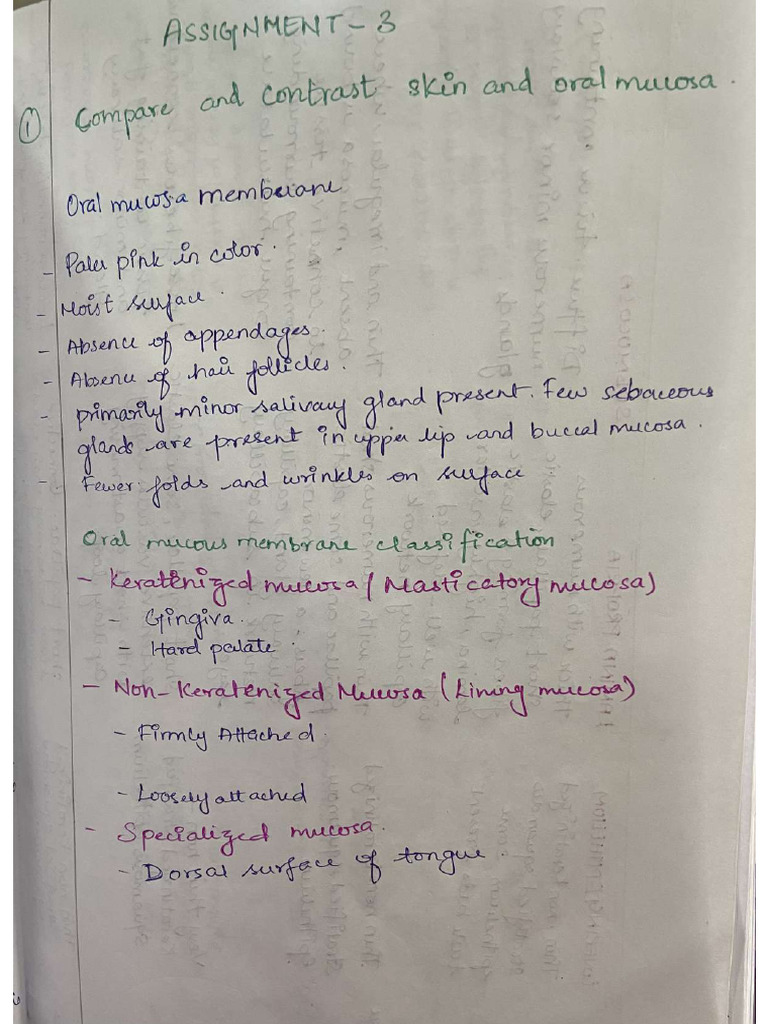 ASSIGNMENT - 3
① Compare and contrast skin and oral mucosa.
Oral mucosa membrane
- Paler pink in color.
- Moist surface.
- Absence of appendages.
- Absence of hair follicles.
- primarily minor salivary gland present. Few sebaceous
glands are present in upper lip and buccal mucosa.
- Fewer folds and wrinkles on surface
Oral mucous membrane classification
- Keratenized mucosa (Masticatory mucosa)
- Gingiva.
- Hard palate.
- Non-Keratenized Mucosa (Lining mucosa)
- Firmly Attached.
- Loosely attached
- Specialized mucosa.
- Dorsal surface of tongue.